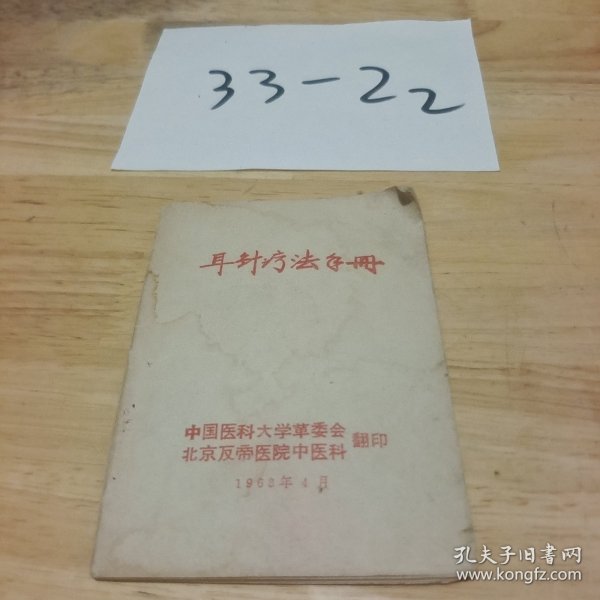 33-22
耳针疗法手册
中国医科大学革委会
北京反帝医院中医科
翻印
1968年4月
孔夫子旧书网
www.kongfz.com